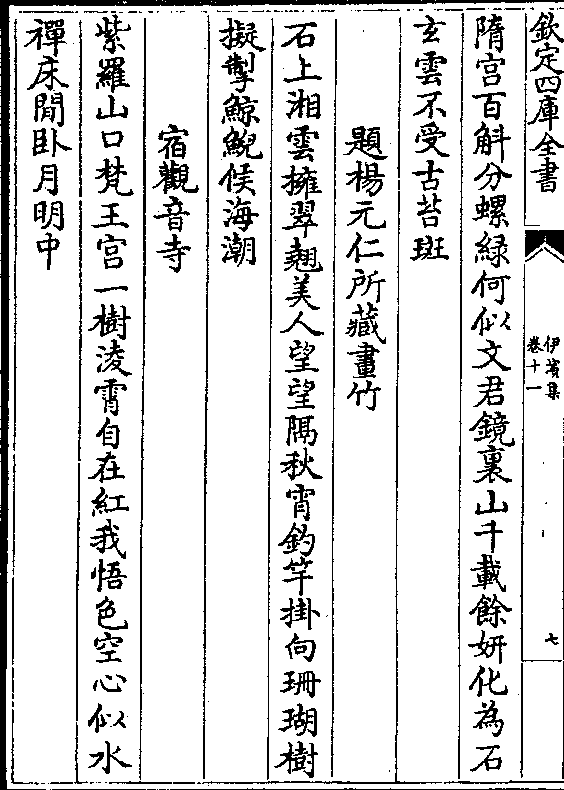 欽定四庫全書
伊濱集
卷十一
七
隋宫百斛分螺緑何似文君鏡裏山千載餘妍化為石
玄雲不受古苔斑
題楊元仁所藏畫竹
石上湘雲擁翠翹美人望望隔秋宵釣竿掛向珊瑚樹
擬掣鯨鯢候海潮
宿觀音寺
紫羅山口梵王宫一樹淩霄自在紅我悟色空心似水
禪床閒卧月明中